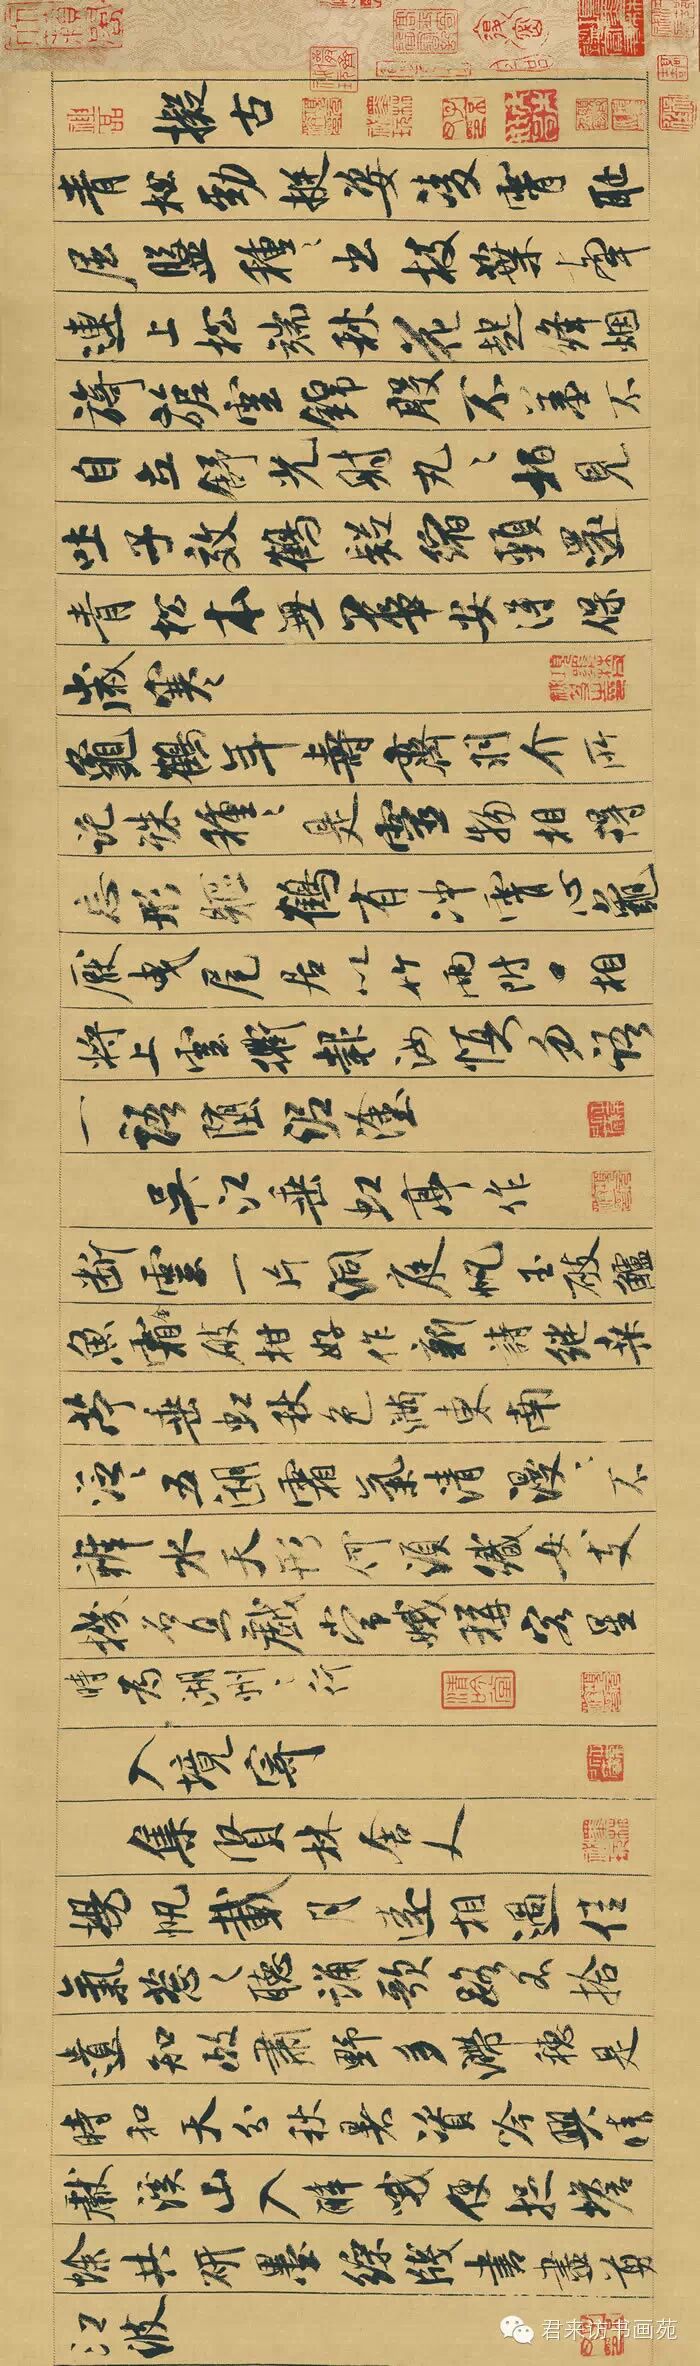 擬古
青松勁挺姿凌霄耻
屈盤種〻出枝葉牽
連上松端秋花起絳烟
旖旎雲錦殷不羞不
自立舒光射丸〻栢見
吐子效鶴疑縮頸還
青松本無華安得保
歲寒
龜鶴年壽齊羽介所
託殊種〻是靈物相得
忘形軀鶴有冲霄心龜
厭曳尾居以竹兩附口相
將上雲衢報汝慎勿語
一語墮泥塗
吳江垂虹亭作
斷雲一片洞庭帆玉破鱸
魚霜破柑好作新詩繼桑
苧垂虹秋色滿東南
泛〻五湖霜氣清漫〻不
辨水天形何須織女支
機石且戲常娥稱客星
時為湖州之行
入境寄
集賢林舍人
揚帆載月遠相過佳
氣葱〻聽誦歌路不拾
遺知政肅野多滯穗是
時和天分秋暑資吟興晴
獻溪山入醉哦便捉蟾
蜍共研墨綵牋書盡剪
江波
君来访书画苑